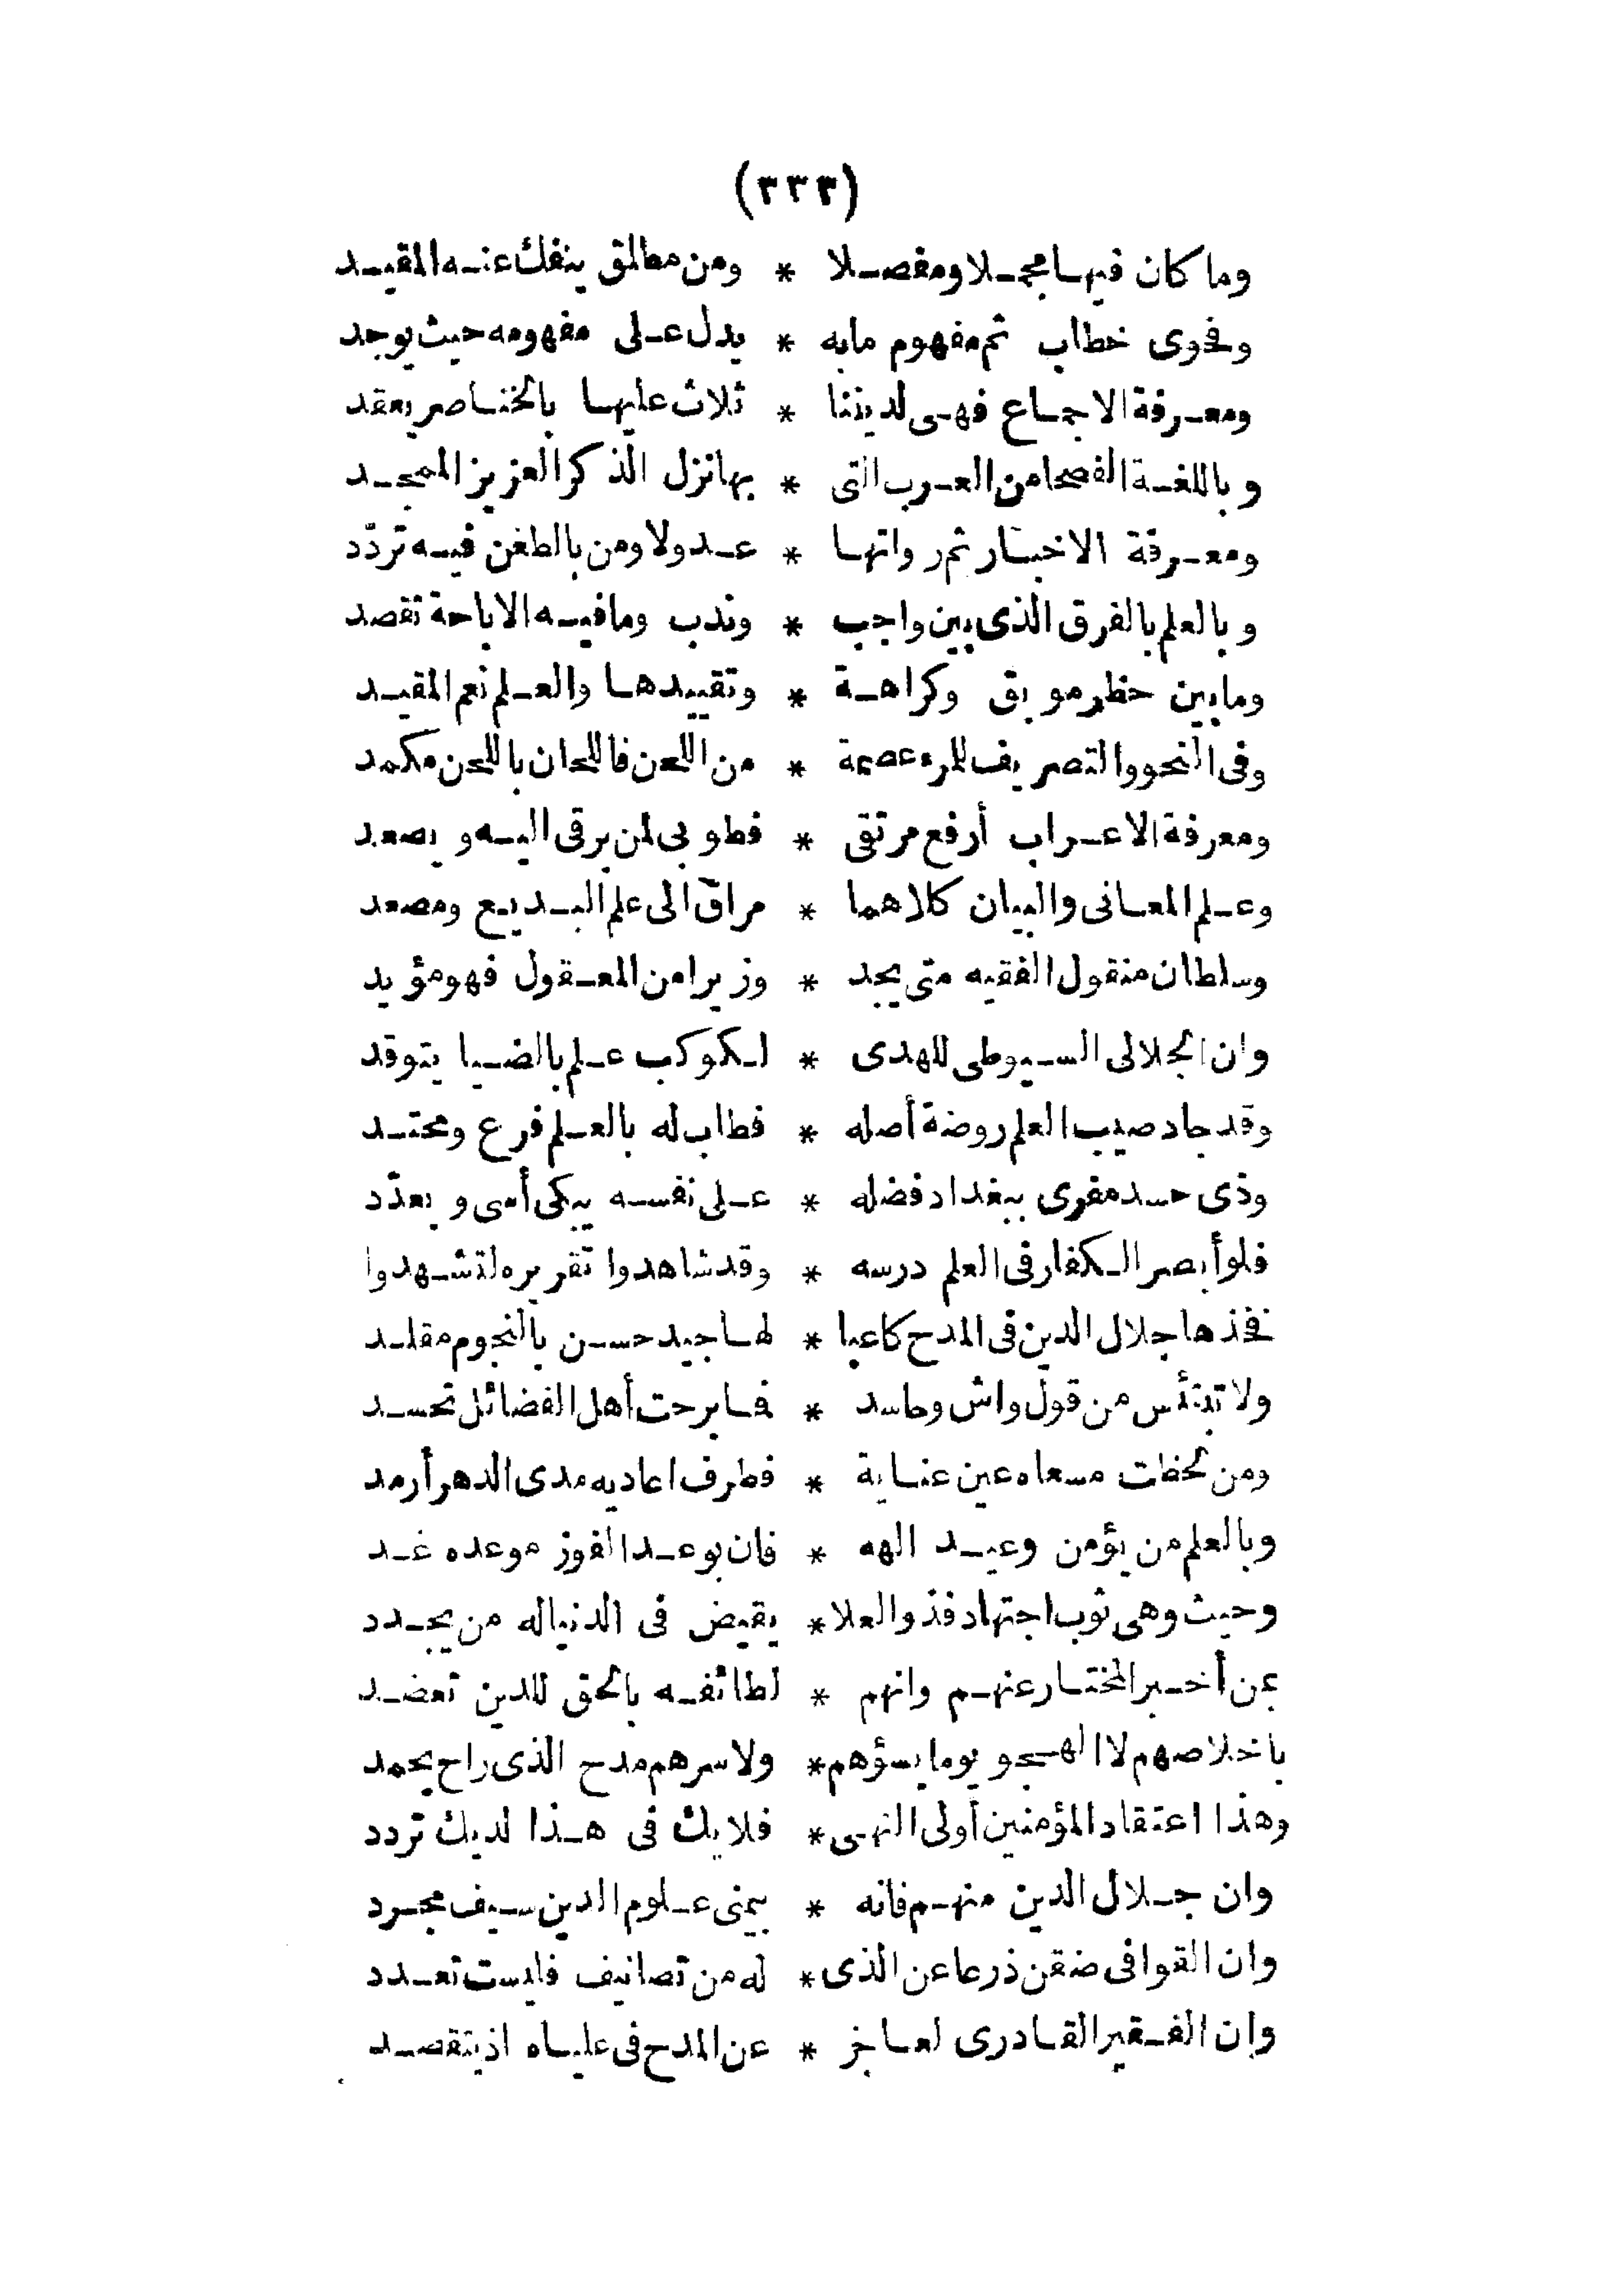 (٣٣٣)
وما كان فيها مجملا ومفصلا * ومن مطلق ينفك عنه المقيد
وفحوى خطاب ثم مفهوم مابه * يدل على مفهومه حيث يوجد
ومعرفة الاجماع فهى لديننا * ثلاث عليها بالخناصر يعقد
وباللغة الفصحا من العرب التى * بها نزل الذكر العزيز الممجد
ومعرفة الاخبار ثم رواتها * عدولا ومن بالطعن فيه تردّد
وبالعلم بالفرق الذى بين واجب * وندب وما فيه الاباحة تقصد
وما بين حظر موبق وكراهة * وتقييدها والعلم نعم المقيد
وفى النحو والتصريف للمرء عصمة * من اللحن فاللحان باللحن مكمد
ومعرفة الاعراب أرفع مرتقى * فطوبى لمن يرقى اليه ويصعد
وعلم المعانى والبيان كلاهما * مراق الى علم البديع ومصعد
وسلطان منقول الفقيه متى يجد * وزيرا من المعقول فهو مؤيد
وان الجلالى السيوطى للهدى * لكوكب علم بالضيا يتوقد
وقد جاد صيب العلم روضة أصله * فطاب له بالعلم فرع ومحتد
وذى حسد مغرى ببغداد فضله * على نفسه يبكى أسى ويعدّد
فلو أبصر الكفار فى العلم درسه * وقد شاهدوا تقريره لتشهدوا
فخذها جلال الدين فى المدح كاعبا * لها جيد حسن بالنجوم مقلد
ولا تبتئس من قول واش وحاسد * فما برحت أهل الفضائل تحسد
ومن لحظت مسعاه عين عناية * فطرف اعاديه مدى الدهر أرمد
وبالعلم من يؤمن وعيد الهه * فان بوعد الفوز موعده غد
وحيث وهى ثوب اجتهاد فذو العلا * يقيض فى الدنيا له من يجدد
عن أخبر المختار عنهم وانهم * لطائفه بالحق للدين تعضد
باخلاصهم لا الهجو يوما يسؤهم * ولا سرهم مدح الذى راح يحمد
وهذا اعتقاد المؤمنين أولى النهى * فلا يك فى هذا لديك تردد
وان جلال الدين منهم فانه * بيمنى علوم الدين سيف مجرد
وان القوافى ضقن ذرعا عن الذى * له من تصانيف فليست تعدد
وان الفقير القادرى لعاجز * عن المدح فى علياه اذ يتقصد